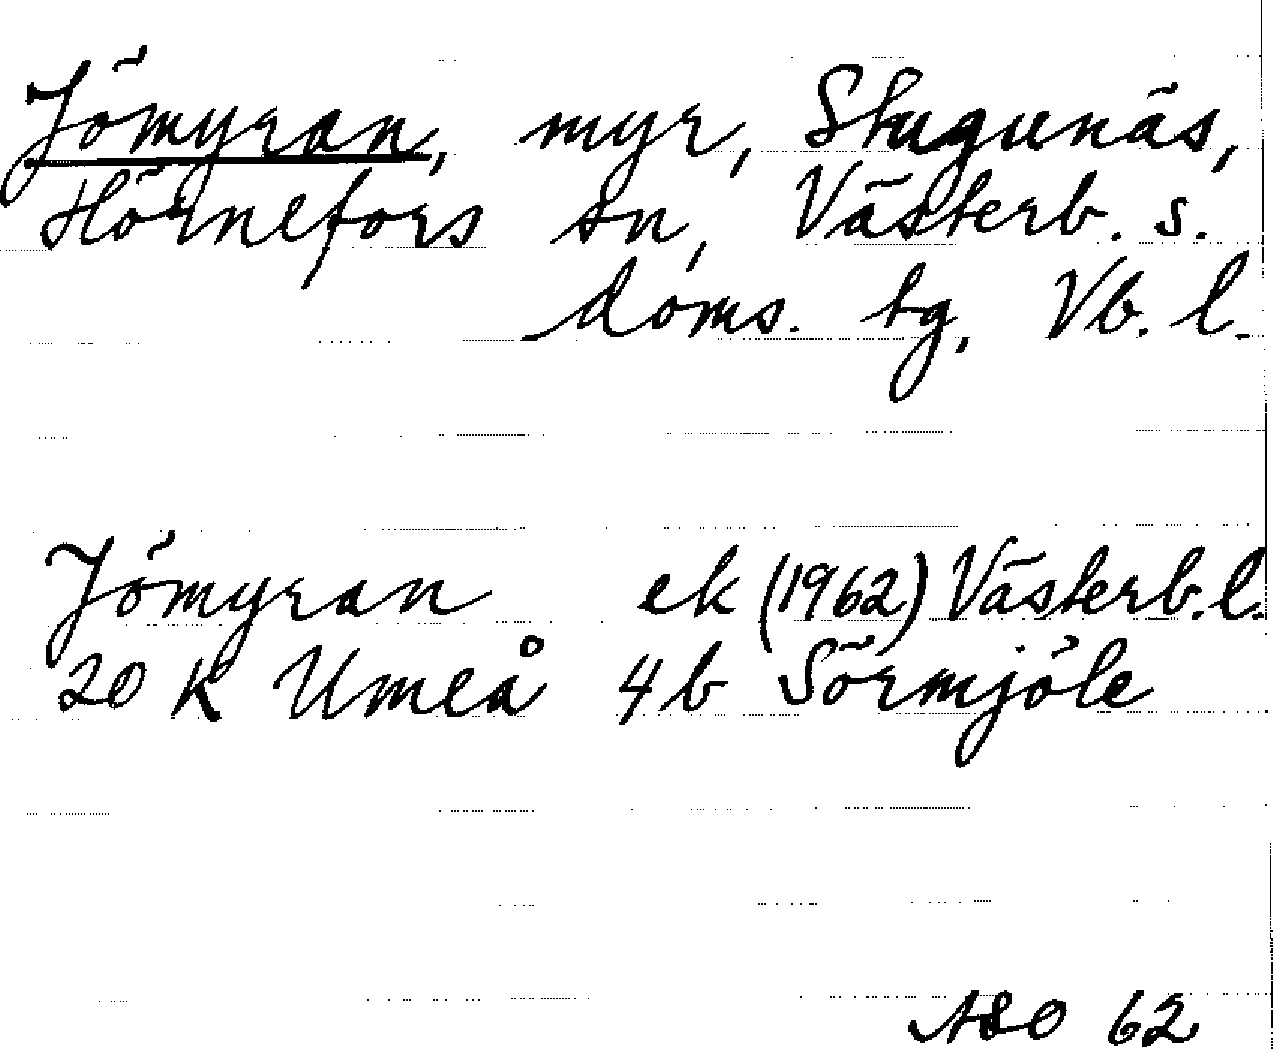 Jömyran, myr, Stugunäs,
Hörnefors sn, Västerb. s.
doms. tg, Vb. l.
Jömyran ek (1962) Västerb. l.
20 K Umeå 4 b Sörmjöle
ASO 62